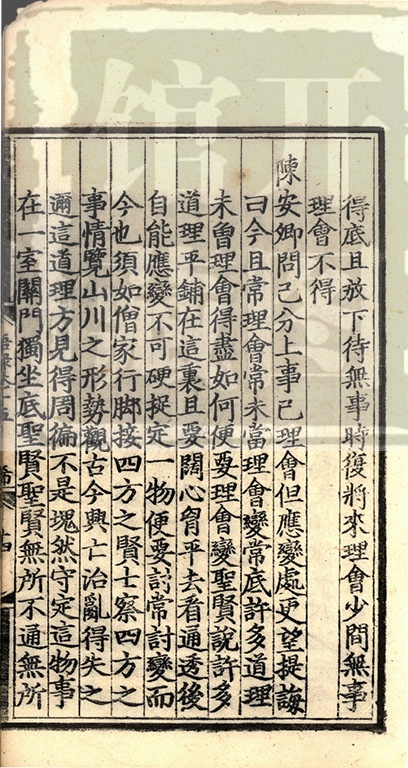 得底且放下待無事時復將來理會少間無事
理會不得
陳安卿問己分上事已理會但應變處更望提誨
曰今且當理會常未當理會變常底許多道理
未曾理會得盡如何便要理會變聖賢說許多
道理平鋪在這裏且要闊心胷平去看通透後
自能應變不可硬捉定一物便要討常討變而
今也須如僧家行腳接四方之賢士察四方之
事情覽山川之形勢觀古今興亡治亂得失之
迹這道理方見得周徧不是塊然守定這物事
在一室關門獨坐底聖賢聖賢無所不通無所